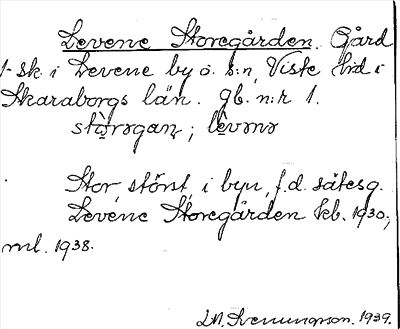 Levene Storegården. Gård
1 sk. i Levene by o. s:n, Viste hd i
Skaraborgs län. Jb. n:r 1.
stò̬rəgaɳ; lè̬vənə
Stor, störst i byn, f.d. sätesg.
Levene Storegården kb. 1930;
ml. 1938.
1939.